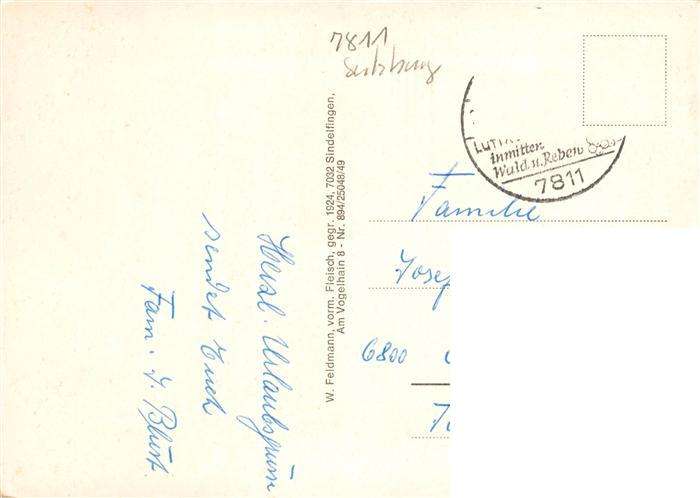 7811
Sulzburg
inmitten
Wald u. Reben
7811
Familie
Josef
6800
W. Feldmann, vorm. Fleisch, gegr. 1924, 7032 Sindelfingen,
Am Vogelhain 8 - Nr. 894/25048/49
Herzl. Urlaubsgrüße
sendet Euch
Fam.